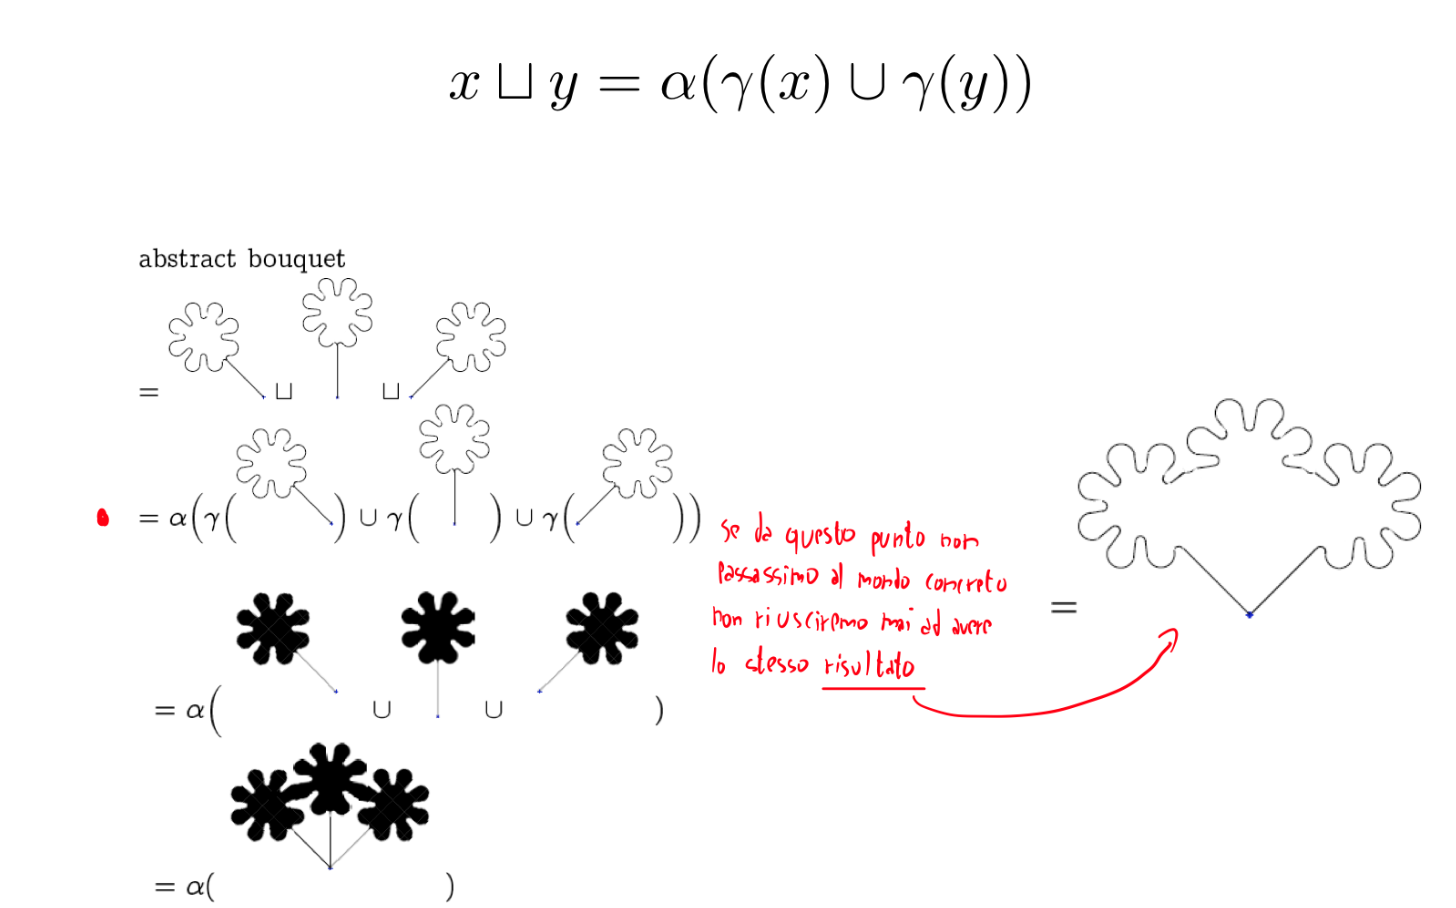 x ⊔ y = α(γ(x) ∪ γ(y))
abstract bouquet
= ⊔ ⊔
= α(γ( ) ∪ γ( ) ∪ γ( ))
se da questo punto non
passassimo al mondo concreto
non riusciremo mai ad avere
lo stesso risultato
= α( ∪ ∪ )
= α( )
=